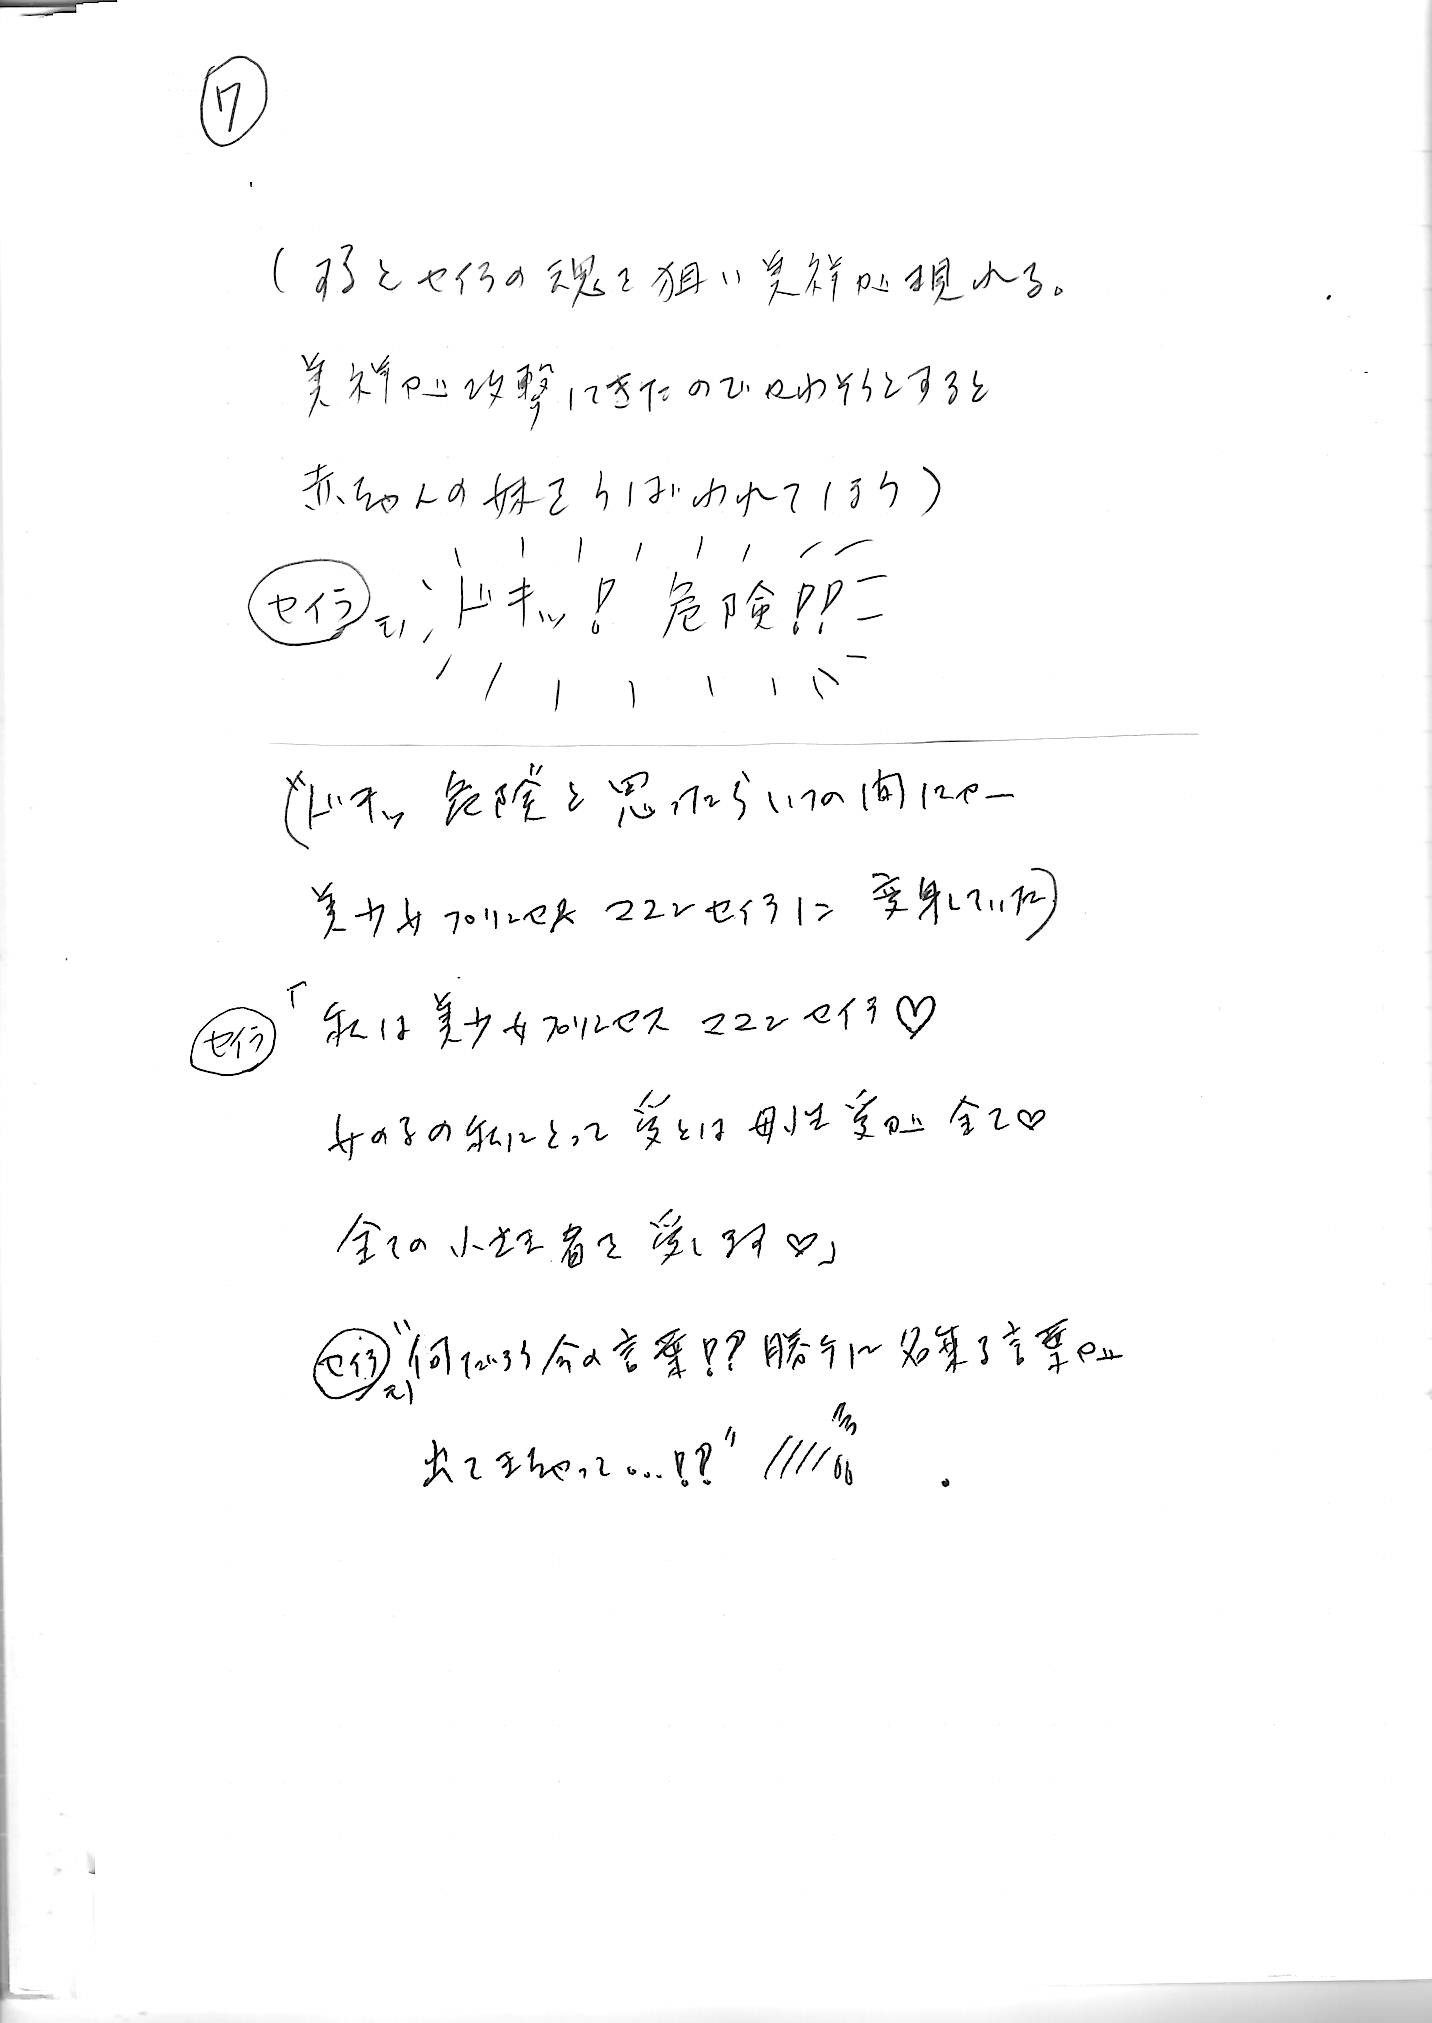 7
（するとセイラの魂を狙い美祥が現れる。
美祥が攻撃してきたのでかわそうとすると
赤ちゃんの妹をうばわれてしまう）
セイラ ドキッ！危険！！
（“ドキッ 危険”と思ったらいつの間にか
美少女プリンセス ママンセイラに変身していた）
セイラ「私は美少女プリンセス ママンセイラ♡
女の子の私にとって愛とは母性愛が全て♡
全ての小さき者を愛します♡」
セイラ “何だろう今の言葉！？勝手に名乗る言葉が
出てきちゃって…！？”